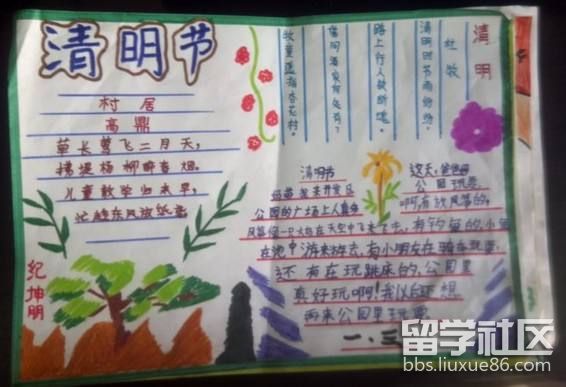 清明节
村居
高鼎
草长莺飞二月天，
拂堤杨柳醉春烟。
儿童散学归来早，
忙趁东风放纸鸢
纪坤朋
清明
杜牧
清明时节雨纷纷，
路上行人欲断魂。
借问酒家何处有？
牧童遥指杏花村。
清明节
这天，爸爸
公园玩
公园的广场上人真多
啊，有放风筝的，
风筝像一只大鸟在天空中飞来飞去，有钓鱼的，小鱼
在池中游来游去，有小朋友在骑
还有在玩跳床的，公园里
真好玩啊！我以后还想
再来公园里玩
一、三
留学社区
bbs.liuxue86.com